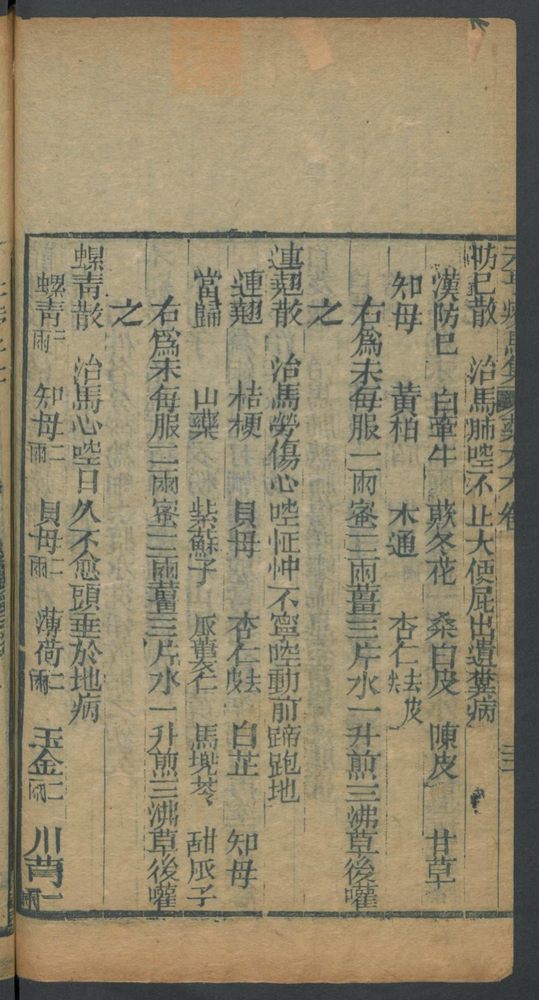 元亨療馬集 藥方卷 三
防已散 治馬肺㗋不止大便屁出遺糞病
漢防已 白牽牛 欵冬花 桑白皮 陳皮 甘草
知母 黃栢 木通 杏仁去皮尖
右為末每服一兩蜜三兩薑三片水一升煎三沸草後嚾
之
連翹散 治馬勞傷心㗋怔忡不寧㗋動前蹄跑地
連翹 桔梗 貝母 杏仁去皮 白芷 知母
當歸 山藥 紫蘇子 瓜蔞仁 馬兠苓 甜瓜子
右為末每服二兩蜜二兩薑三片水一升煎三沸草後嚾
之
螺青散 治馬心㗋日久不愈頭垂於地病
螺青二兩 知母二兩 貝母二兩 薄荷二兩 玉金二兩 川芎二兩